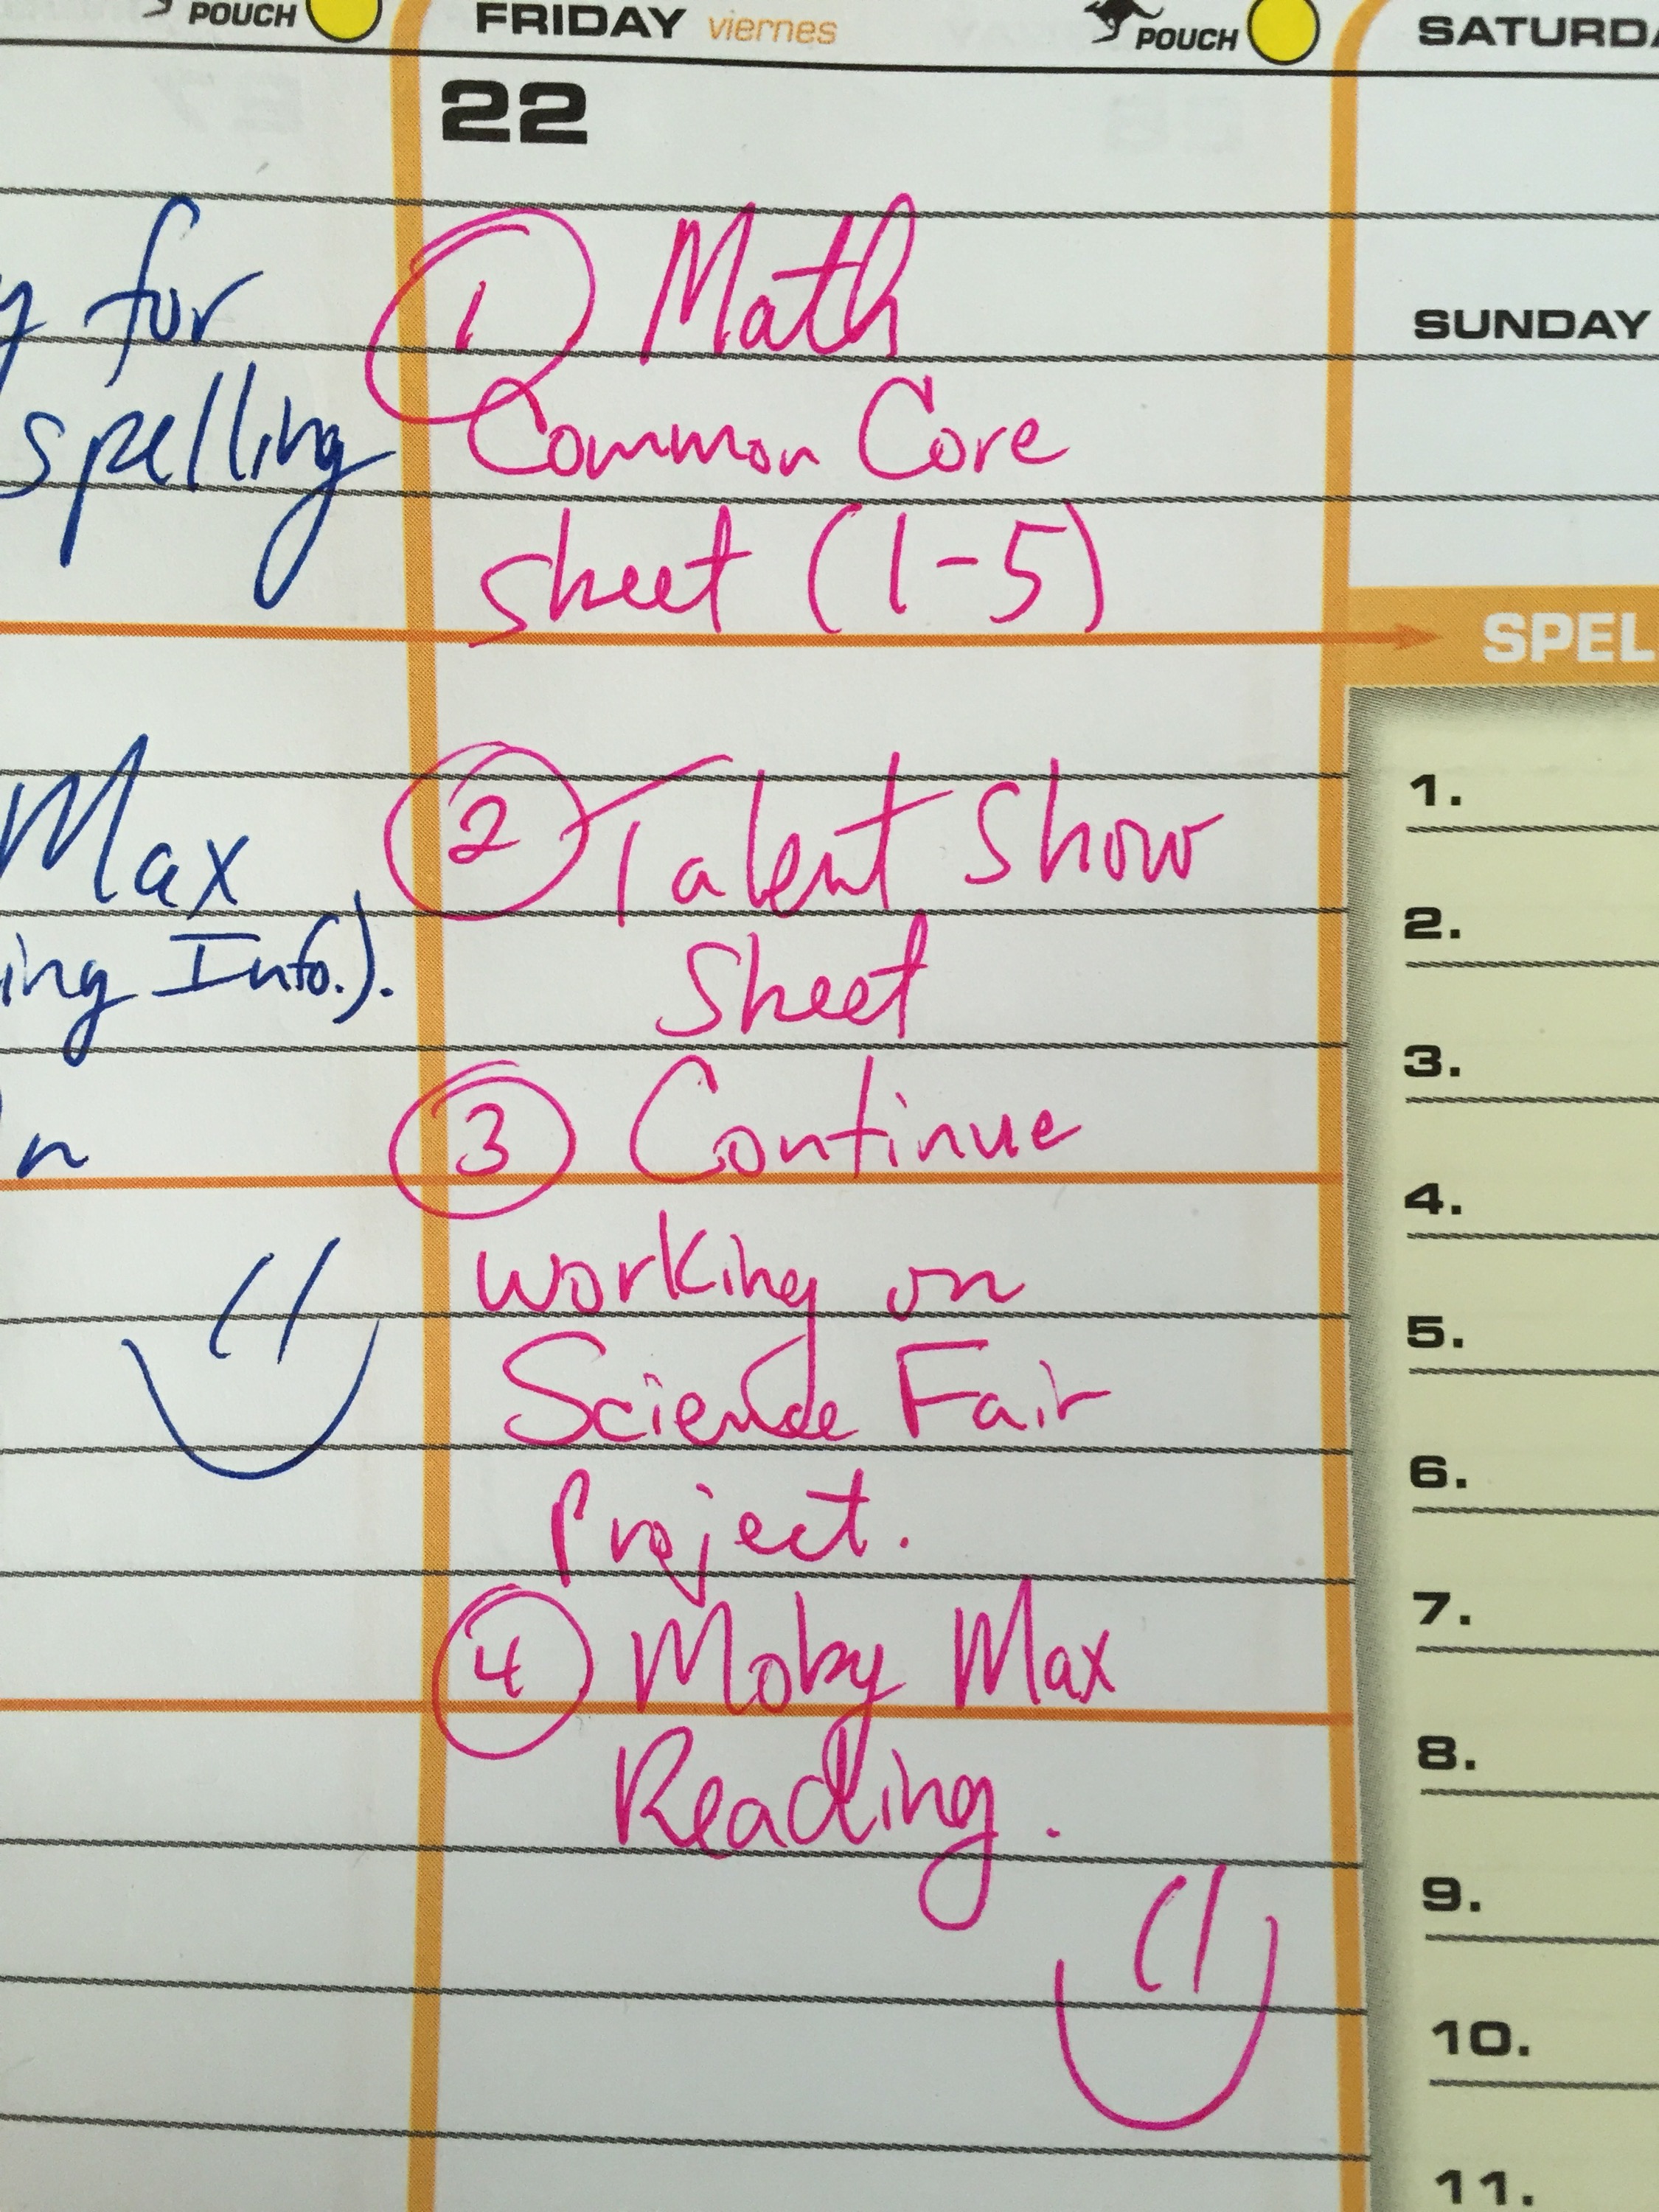 POUCH
FRIDAY viernes
POUCH
SATURDA
22
for
spelling
Max
ing Info.).
n
① Math
Common Core
sheet (1-5)
② Talent Show
Sheet
③ Continue
working on
Science Fair
Project.
④ Moby Max
Reading.
SUNDAY
SPEL
1.
2.
3.
4.
5.
6.
7.
8.
9.
10.
11.